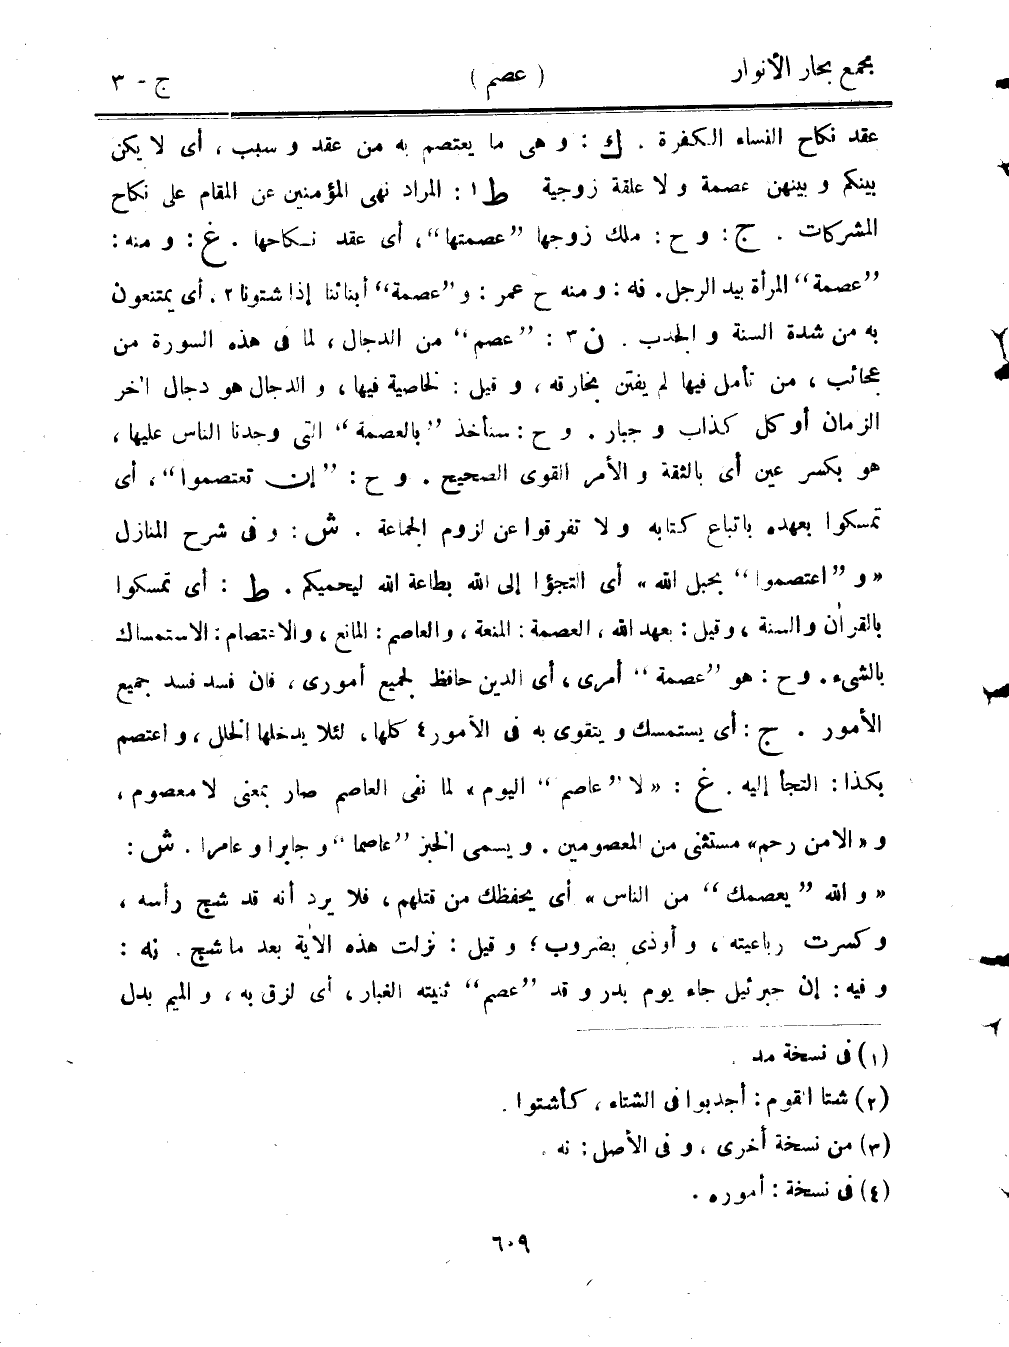 مجمع بحار الأنوار ( عصم ) ج - ٣
عقد نكاح النساء الكفرة . ك : و هى ما يعتصم به من عقد و سبب ، أى لا يكن
بينكم و بينهن عصمة و لا علقة زوجية ط ١ : المراد نهى المؤمنين عن المقام على نكاح
المشركات . ج : و ح : ملك زوجها ”عصمتها“، أى عقد نكاحها . غ : و منه :
”عصمة“ المرأة بيد الرجل. نه : و منه ح عمر : و ”عصمة“ أبنائنا إذا شتونا ٢ . أى يمتنعون
به من شدة السنة و الجدب . ن ٣ : ”عصم“ من الدجال ، لما فى هذه السورة من
عجائب ، من تأمل فيها لم يفتن بخارقه ، و قيل : لخاصية فيها ، و الدجال هو دجال اٰخر
الزمان أو كل كذاب و جبار . و ح : سنأخذ ”بالعصمة“ التى وجدنا الناس عليها ،
هو بكسر عين أى بالثقة و الأمر القوى الصحيح . و ح : ”إن تعتصموا“، أى
تمسكوا بعهده باتباع كتابه و لا تفرقوا عن لزوم الجماعة . ش : و فى شرح المنازل
« و ”اعتصموا“ بحبل الله » أى التجؤا إلى الله بطاعة الله ليحميكم . ط : أى تمسكوا
بالقراٰن و السنة ، و قيل : بعهد الله ، العصمة : المنعة ، و العاصم : المانع ، و الاعتصام : الاستمساك
بالشىء . و ح : هو ”عصمة“ أمرى ، أى الدين حافظ لجميع أمورى ، فان فسد فسد جميع
الأمور . ج : أى يستمسك و يتقوى به فى الأمور ٤ كلها ، لئلا يدخلها الخلل ، و اعتصم
بكذا : التجأ إليه . غ : « لا ”عاصم“ اليوم » لما نفى العاصم صار بمعنى لا معصوم ،
و « الا من رحم » مستثنى من المعصومين . و يسمى الخبز ”عاصما“ و جابرا و عامرا . ش :
« و الله ”يعصمك“ من الناس » أى يحفظك من قتلهم ، فلا يرد أنه قد شج رأسه ،
و كسرت رباعيته ، و أوذى بضروب ؛ و قيل : نزلت هذه الاٰية بعد ما شج . نه :
و فيه : إن جبرئيل جاء يوم بدر و قد ”عصم“ ثنيته الغبار ، أى لزق به ، و الميم بدل
(١) فى نسخة مد .
(٢) شتا القوم : أجدبوا فى الشتاء ، كأشتوا .
(٣) من نسخة أخرى ، و فى الأصل : نه .
(٤) فى نسخة : أموره .
٦٠٩